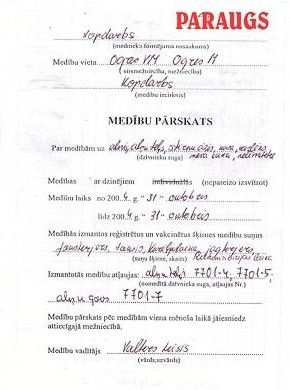 PARAUGS
Kopdarbs
(mednieku formējuma nosaukums)
Medību vieta Ogres VM Ogres M
(virsmežniecība, mežniecība)
Kopdarbs
(medību iecirknis)
MEDĪBU PĀRSKATS
Par medībām uz
(dzīvnieku suga)
Medības ar dzinējiem individuālās (nepareizo izsvītrot)
Medību laiks no 200 4. g. "31" oktobris
līdz 200 4. g. "31" oktobris
Medībās izmantos reģistrētus un vakcinētus šķirnes medību suņus
(suņu šķirne, skaits)
Izmantotās medību atļaujas: 7701-4, 7701-5,
(nomedītā dzīvnieku suga, atļaujas Nr.)
7701-7
Medību pārskats pēc medībām viena mēneša laikā jāiesniedz
attiecīgajā mežniecībā.
Medību vadītājs Valters
(vārds, uzvārds)